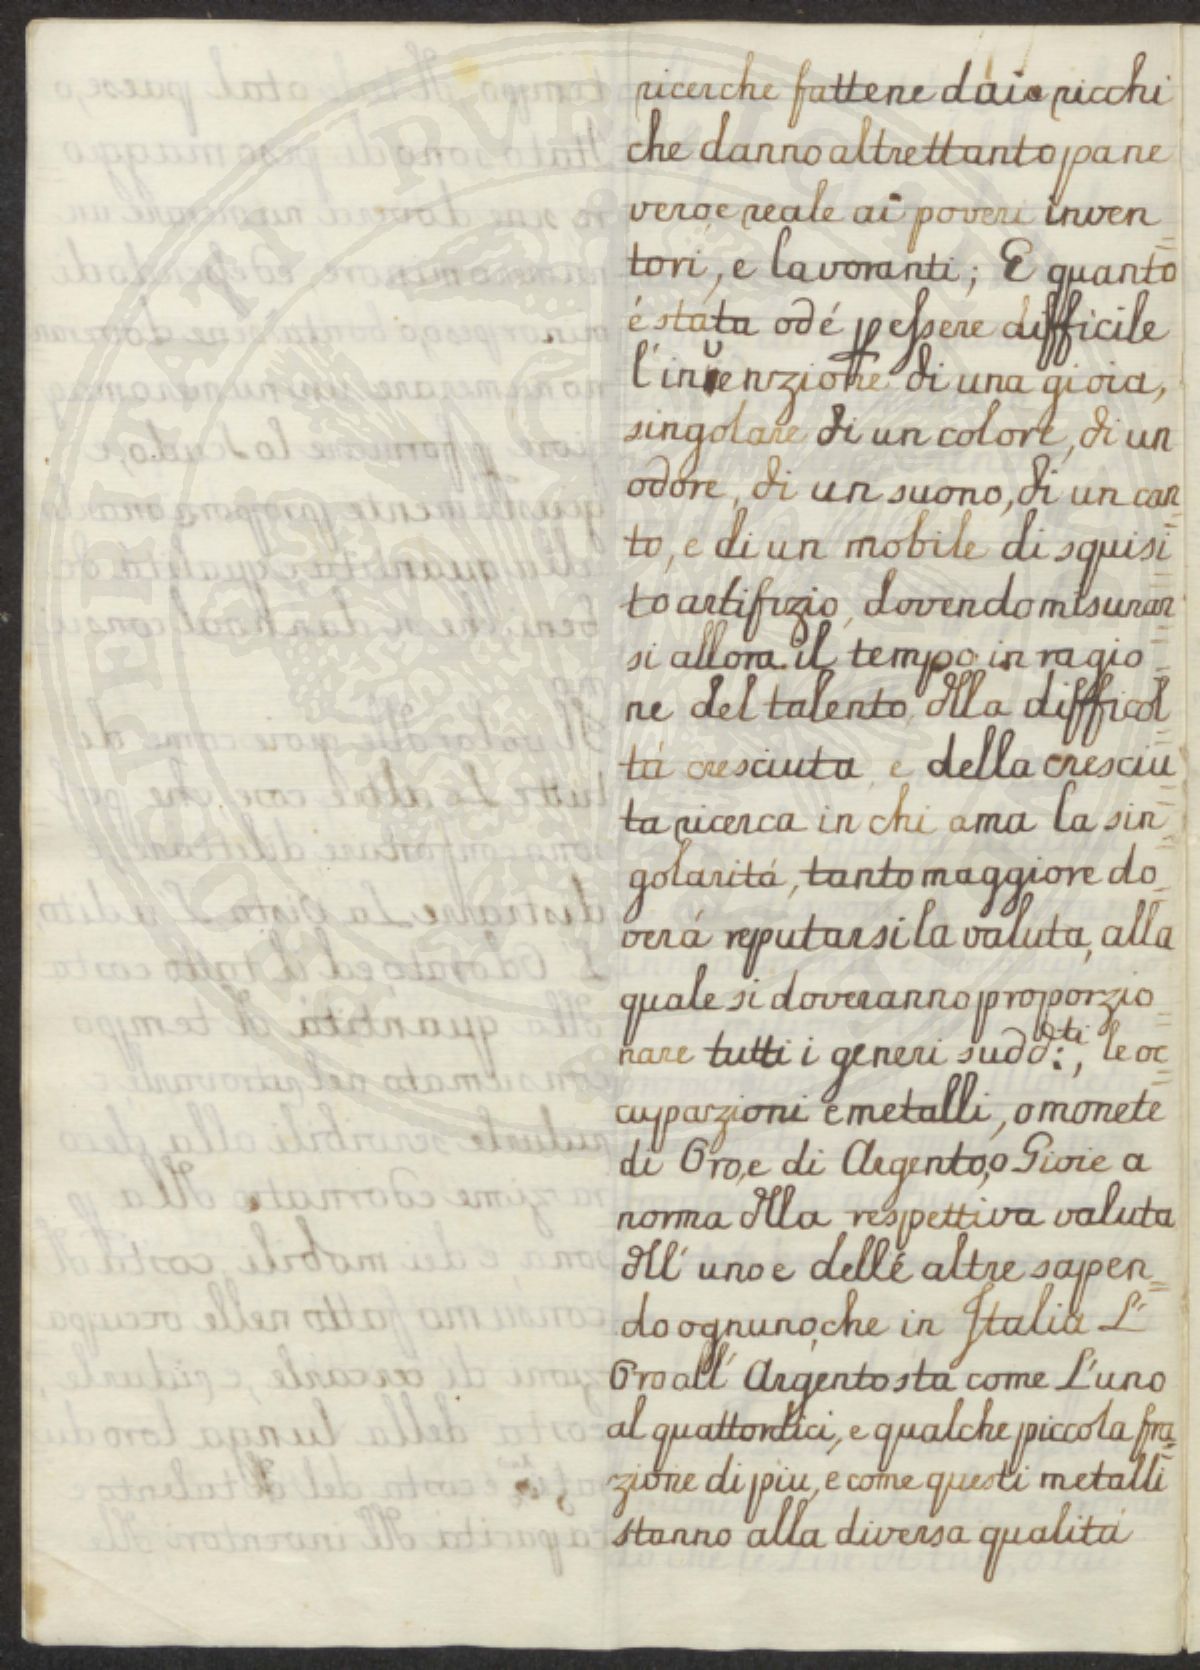 ricerche fattene dai ricchi
che danno altrettanto pane
vero, e reale ai poveri inven=
tori, e lavoranti; E quanto
é stata od é p essere difficile
l'invenzione di una gioia,
singolare di un colore, di un
odore, di un suono, di un can=
to, e di un mobile di squisi=
to artifizio, dovendo misurar=
si allora il tempo in ragio=
ne del talento, dlla difficol=
tá cresciuta, e della cresciu=
ta ricerca in chi ama la sin=
golaritá, tanto maggiore do=
verá reputarsi la valuta, alla
quale si doveranno proporzio=
nare tutti i generi sudd:ti, le oc=
cuparzioni e metalli, o monete
di Oro, e di Argento, o Gioie a
norma dlla respettiva valuta
dll' uno e delle altre sapen=
do ognuno, che in Italia L'
Oro all' Argento sta come L'uno
al quattordici, e qualche piccola fra=
zione di piu, e come questi metalli
stanno alla diversa qualitá